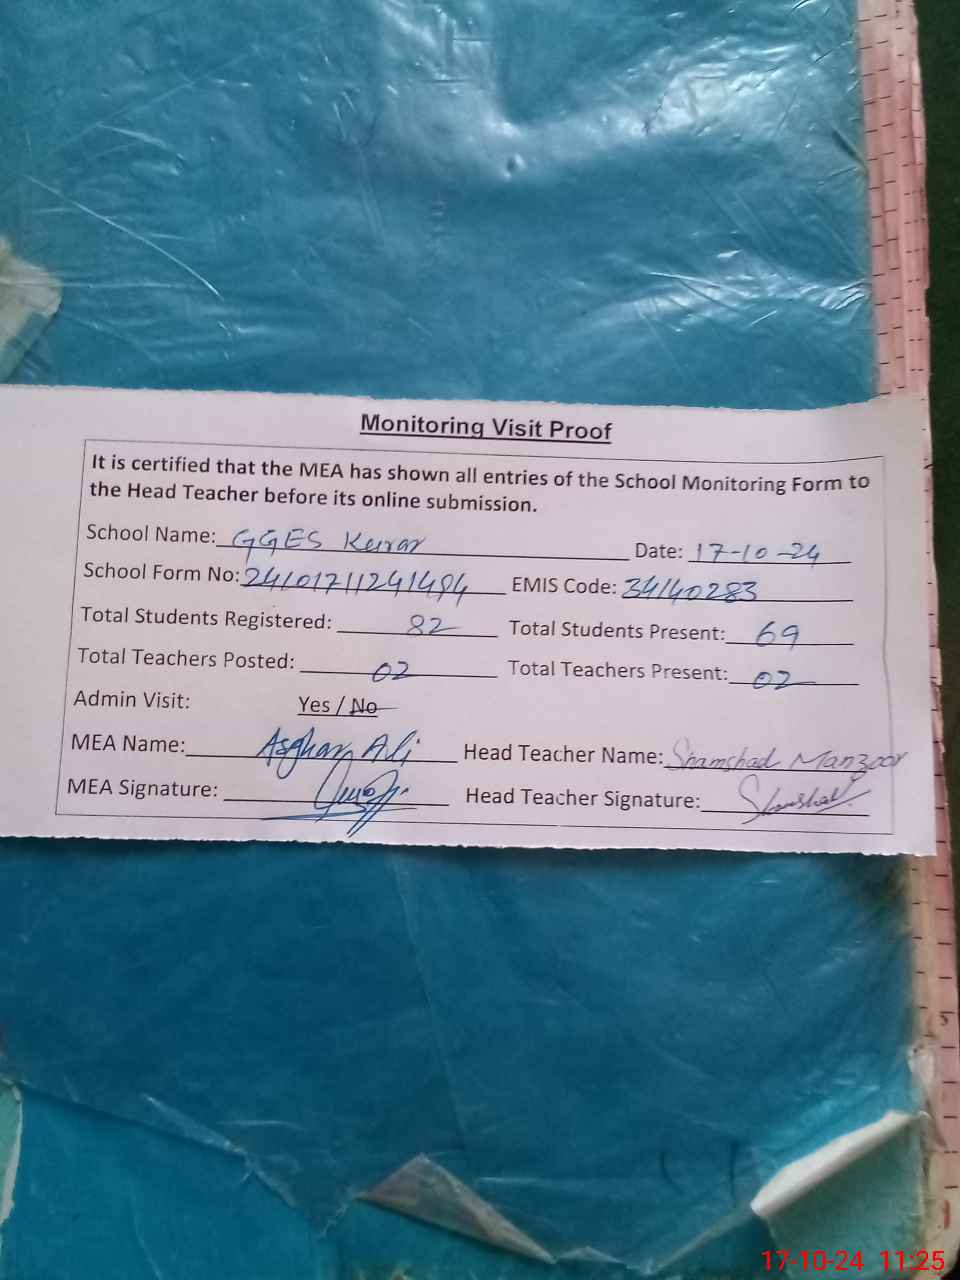 Monitoring Visit Proof
It is certified that the MEA has shown all entries of the School Monitoring Form to
the Head Teacher before its online submission.
School Name: GGES Date: 17-10-24
School Form No: EMIS Code: 34140283
Total Students Registered: 82 Total Students Present: 69
Total Teachers Posted: 02 Total Teachers Present: 02
Admin Visit: Yes / No
MEA Name: Asghar Ali Head Teacher Name: Shamshad Manzoor
MEA Signature: Head Teacher Signature: Shamshad
17-10-24 11:25